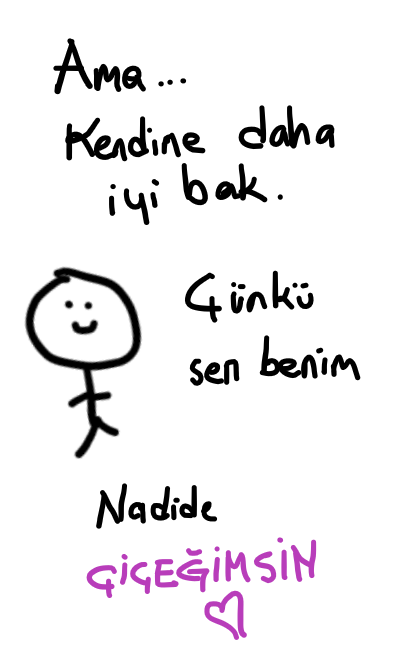 Ama...
Kendine daha
iyi bak.
Çünkü
sen benim
Nadide
ÇİÇEĞİMSİN